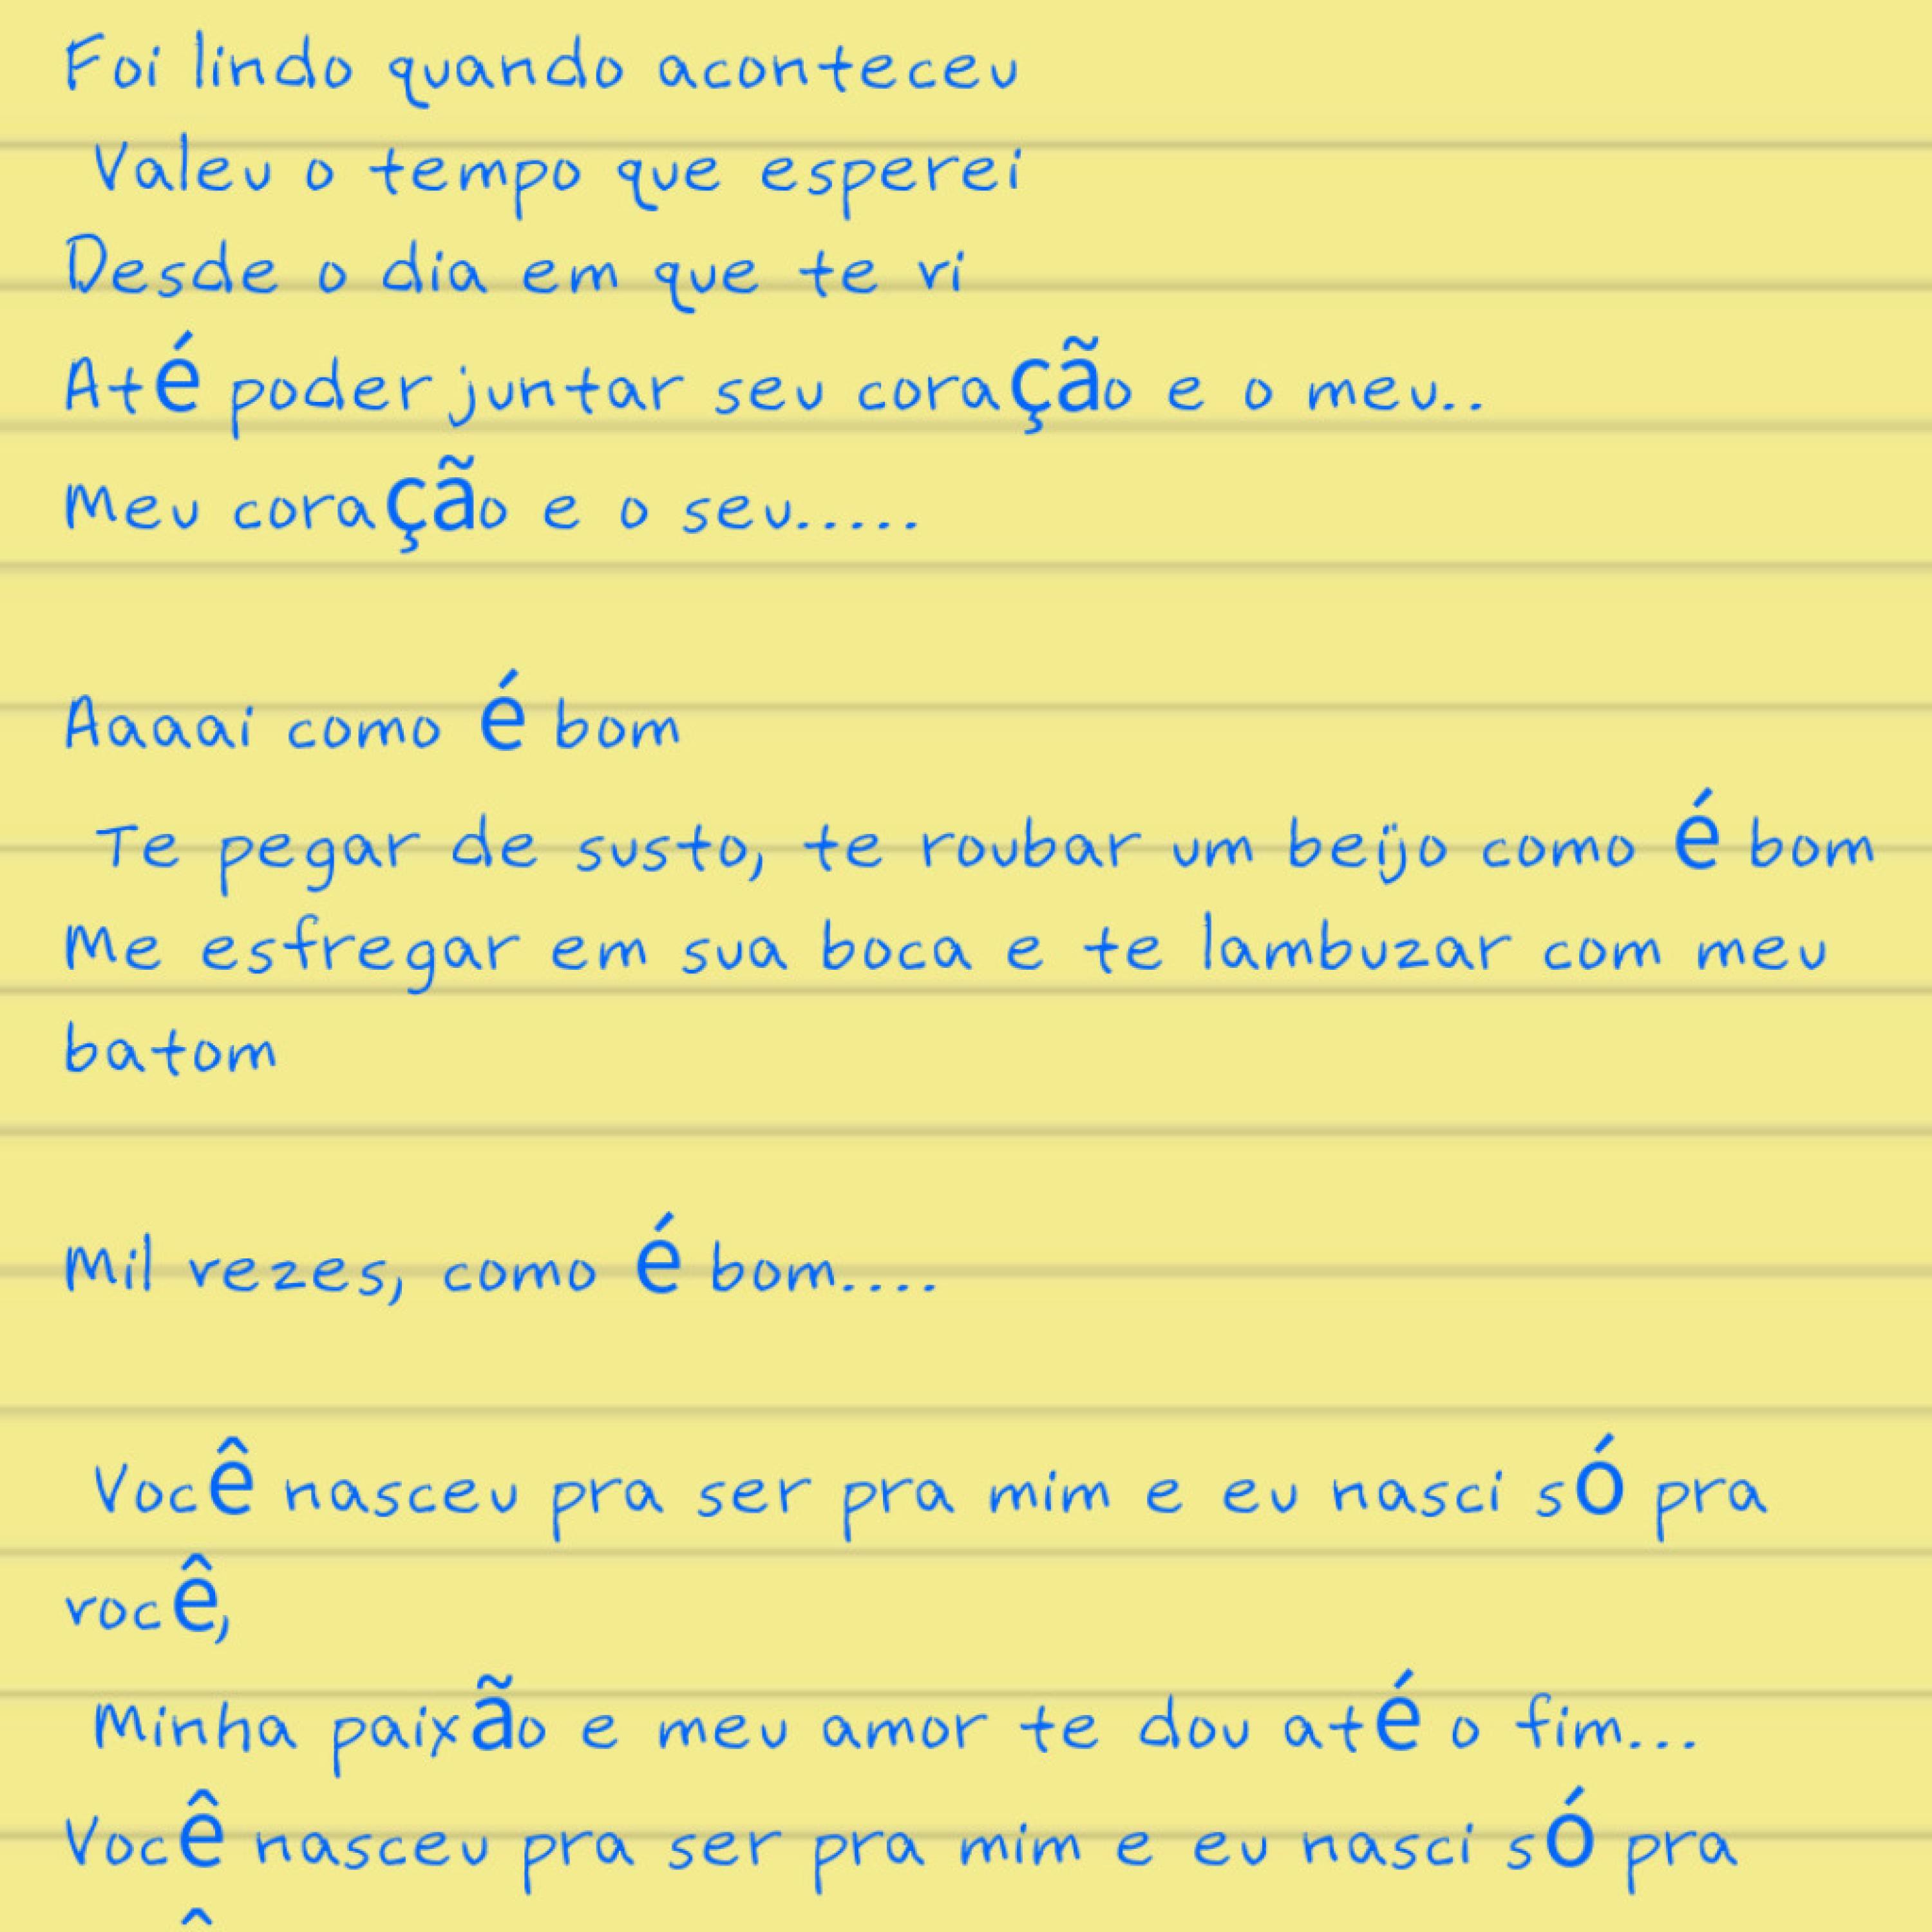 Foi lindo quando aconteceu
Valeu o tempo que esperei
Desde o dia em que te vi
Até poder juntar seu coração e o meu..
Meu coração e o seu.....
Aaaai como é bom
Te pegar de susto, te roubar um beijo como é bom
Me esfregar em sua boca e te lambuzar com meu
batom
Mil vezes, como é bom....
Você nasceu pra ser pra mim e eu nasci só pra
você,
Minha paixão e meu amor te dou até o fim...
Você nasceu pra ser pra mim e eu nasci só pra